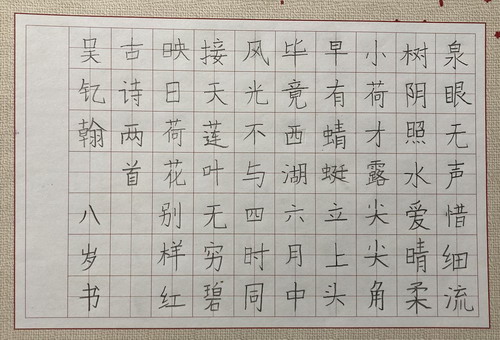 泉眼无声惜细流
树阴照水爱晴柔
小荷才露尖尖角
早有蜻蜓立上头
毕竟西湖六月中
风光不与四时同
接天莲叶无穷碧
映日荷花别样红
古诗两首
吴钇翰 八岁书